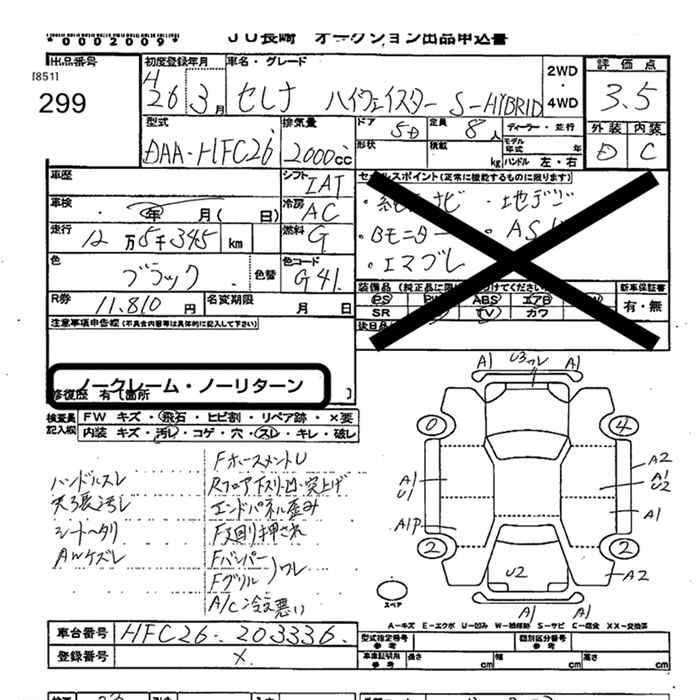 *0002009*
JU長崎 オークション出品申込書
出品番号 [851] 299
初度登録年月 H 26年 3月
車名・グレード セレナ ハイウェイスター S-HYBRID
2WD・4WD
評価点 3.5
外装 D 内装 C
型式 DAA-HFC26
排気量 2000cc
ドア 5D 定員 8人
形状 積載
ディーラー・並行
モデル年式 年
ハンドル 左・右
車歴
シフト IAT
車検 年 月 ( 日)
冷房 AC
走行 12万5千345 km
燃料 G
色 ブラック 色替
色コード G41
R券 11.810円
名変期限 月 日
セールスポイント(正常に機能するものに限ります)
・純正ナビ ・地デジ
・Bモニター
・エマブレ
新車保証書 有・無
PS ABS エアB
SR TV カワ
注意事項申告欄(不具合内容等は具体的に記入して下さい)
ノークレーム・ノーリターン
修復歴 有 [箇所 ]
検査員記入欄
FW キズ・飛石・ヒビ割・リペア跡・×要
内装 キズ・汚レ・コゲ・穴・スレ・キレ・破レ
ハンドルスレ
天張汚レ
シートヘタリ
AWケズレ
Fホースメント凹
Rフロア下スリ凹・突上げ
エンドパネル歪み
F廻り押され
Fバンパー
Fグリル ワレ
A/C冷え悪い
A1 U3ワレ A1
0 4
A1 U1 A2 A1 U2
A1P A1
2 2
U2 A2
A1 A1
スペア
A-キズ E-エクボ U-凹み W-補修跡 S-サビ C-腐食 XX-交換済
車台番号 HFC26-203336
登録番号 ×
型式指定番号 参考
類別区分番号 参考
車庫証明用 参考 長さ cm 幅 cm 高さ cm